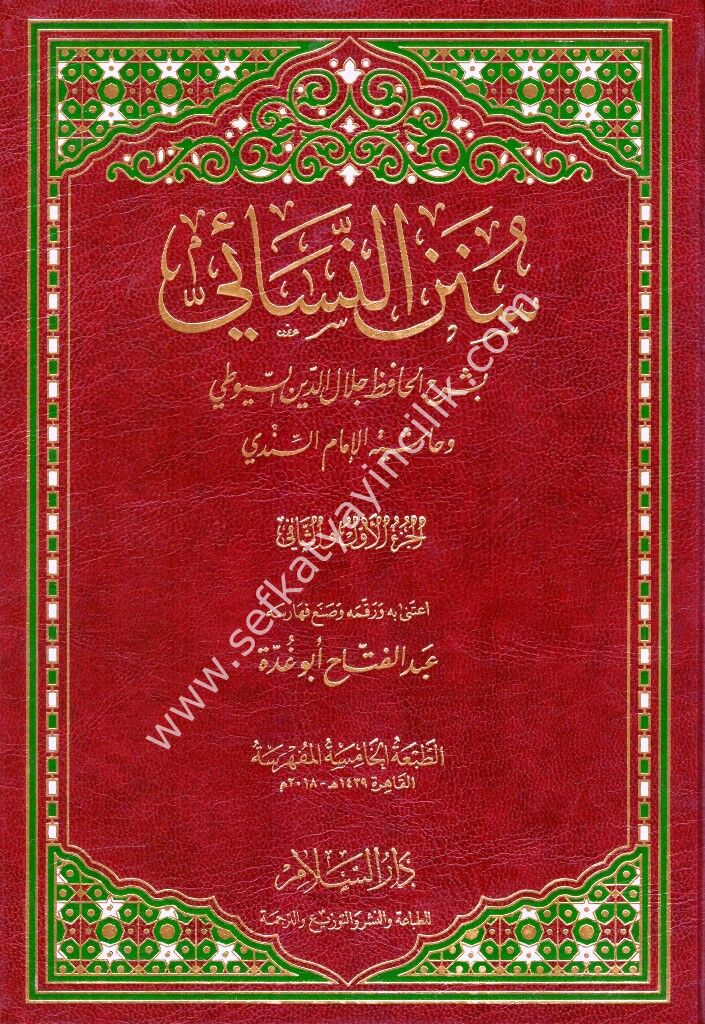 سُنَن النَّسَائِيّ
بشرح الحافظ جلال الدين السيوطي
وحاشية الإمام السندي
الجزء الأول والثاني
اعتنى به ورقمه وصنع فهارسه
عبد الفتاح أبو غُدّة
الطبعة الخامسة المفهرسة
القاهرة ١٤٣٩هـ - ٢٠١٨م
دار السلام
للطباعة والنشر والتوزيع والترجمة
www.sefkatyayincilik.com